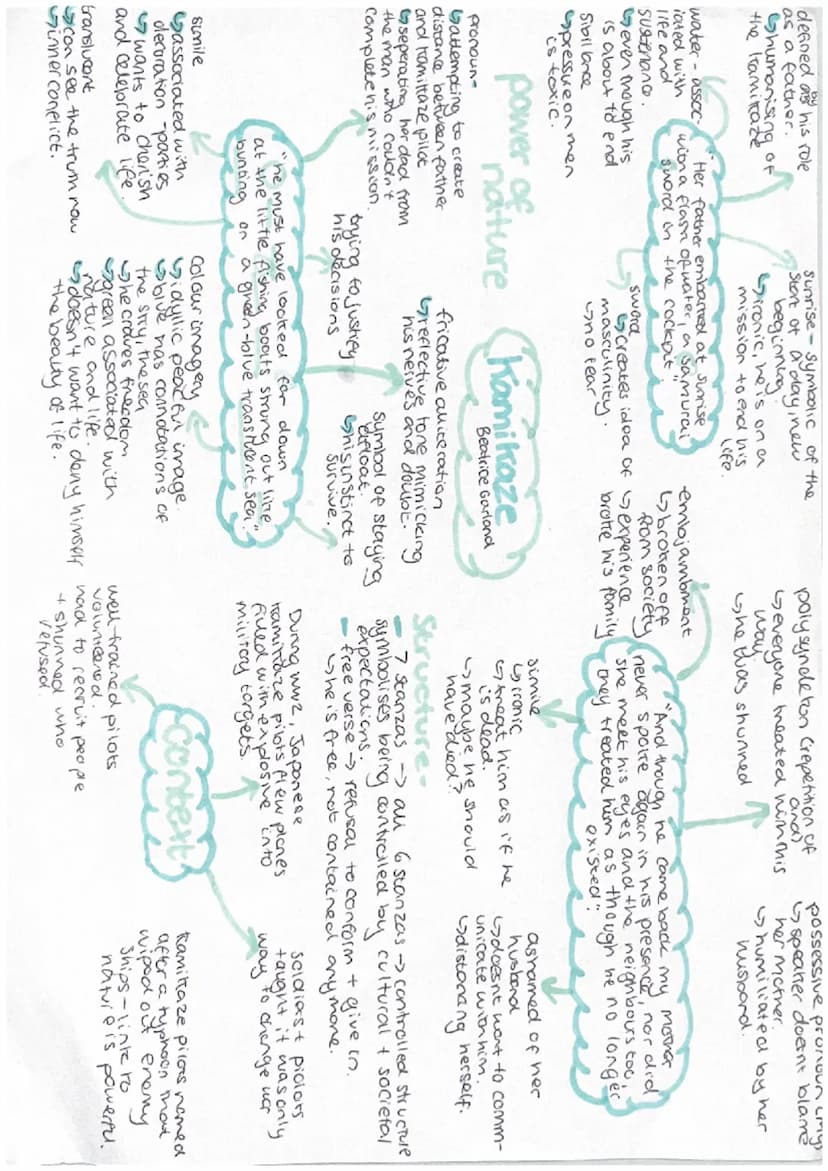 defined as by his role
as a father.
↳ humanising of
the kamikaze
sunrise - symbolic of the
start of a day, new
beginning.
↳ ironic, he is on a
mission to end his
life.
water - assoc-
iated with
life and
sustenance.
↳ even though his
is about to end
Sibilance
↳ pressure on men
is toxic.
"Her father embarked at sunrise
with a flash of water, a samurai
sword in the cockpit"
sword
↳ creates idea of
masculinity.
↳ no fear
power of
nature
Kamikaze
Beatrice Garland
pronoun-
↳ attempting to create
distance between father
and kamikaze pilot
↳ seperating her dad from
the man who couldn't
complete his mission.
fricative alliteration
↳ reflective tone mimicking
his nerves and doubt.
trying to justify
his decisions
symbol of staying
afloat.
↳ his instinct to
survive.
"he must have looked far down
at the little fishing boats strung out like
bunting on a green-blue translucent sea"
simile
↳ associated with
decoration - parties
↳ wants to cherish
and celebrate life.
translucent
↳ can see the truth now
↳ inner conflict.
Colour imagery
↳ idyllic peaceful image.
↳ blue has connotations of
the sky, the sea
↳ he craves freedom
↳ green associated with
nature and life.
↳ doesn't want to deny himself
the beauty of life.
polysyndeton (repetition of
and)
↳ everyone treated him this
way.
↳ he was shunned
possessive pronoun (my)
↳ speaker doesn't blame
her mother.
↳ humiliated by her
husband.
-enjambment
↳ broken off
from society
↳ experience
broke his family
"And though he came back my mother
never spoke again in his presence, nor did
she meet his eyes and the neighbours too,
they treated him as though he no longer
existed"
simile
↳ ironic
↳ treat him as if he
is dead.
↳ maybe he should
have died?
ashamed of her
husband
↳ doesn't want to comm-
unicate with him.
↳ distancing herself.
Structure-
- 7 stanzas → all 6 stanzas → controlled structure
symbolises being controlled by cultural + societal
expectations.
- free verse → refusal to conform + give in.
↳ he is free, not contained anymore.
Context
During WW2, Japanese
kamikaze pilots flew planes
filled with explosive into
military targets
soldiers + pilots
taught it was only
way to change war
well-trained pilots
volunteered.
had to recruit people
+ shunned who
refused.
kamikaze pilots named
after a typhoon that
wiped out enemy
ships - link to
nature is powerful.